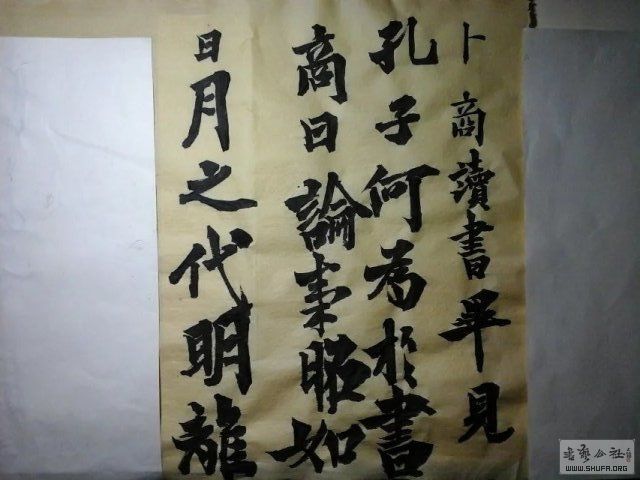 卜商讀書畢見
孔子何为於書
商曰論事昭如
日月之代明龍
书艺公社
WWW.SHUFA.ORG